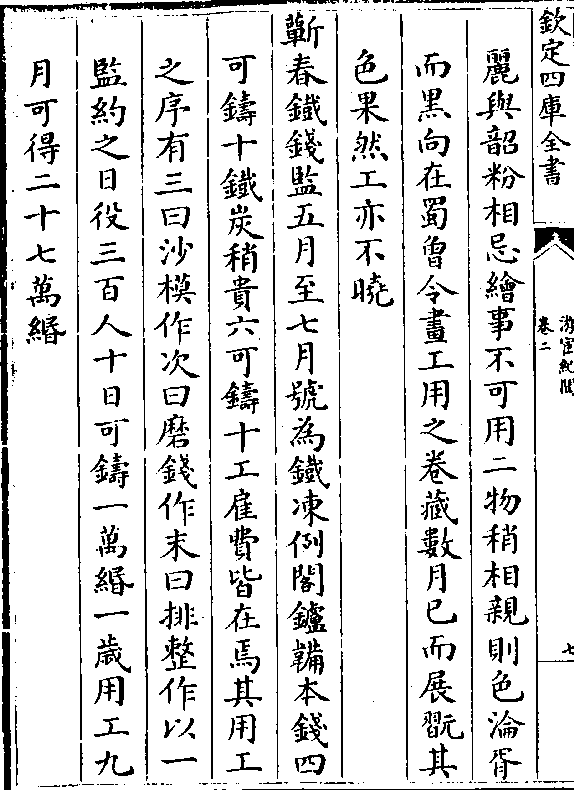 欽定四庫全書
游宦紀聞
卷二
七
麗與韶粉相忌繪事不可用二物稍相親則色淪胥
而黑向在蜀曾令畫工用之卷藏數月已而展翫其
色果然工亦不曉
蘄春鐵錢監五月至七月號為鐵凍例閣鑪韛本錢四
可鑄十鐵炭稍貴六可鑄十工雇費皆在焉其用工
之序有三曰沙模作次曰磨錢作末曰排整作以一
監約之日役三百人十日可鑄一萬緡一歲用工九
月可得二十七萬緡